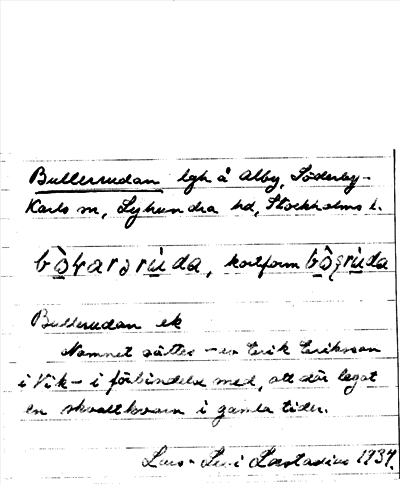 Bullerrudan lgh å Alby, Söderby-
Karls sn, Lyhundra hd, Stockholms l.
kortform
Bullerudan ek
Namnet sättes - av Erik Eriksson
i Vik - i förbindelse med, att där legat
en skvaltkvarn i gamla tider.
Lars - Levi Læstadius 1937.